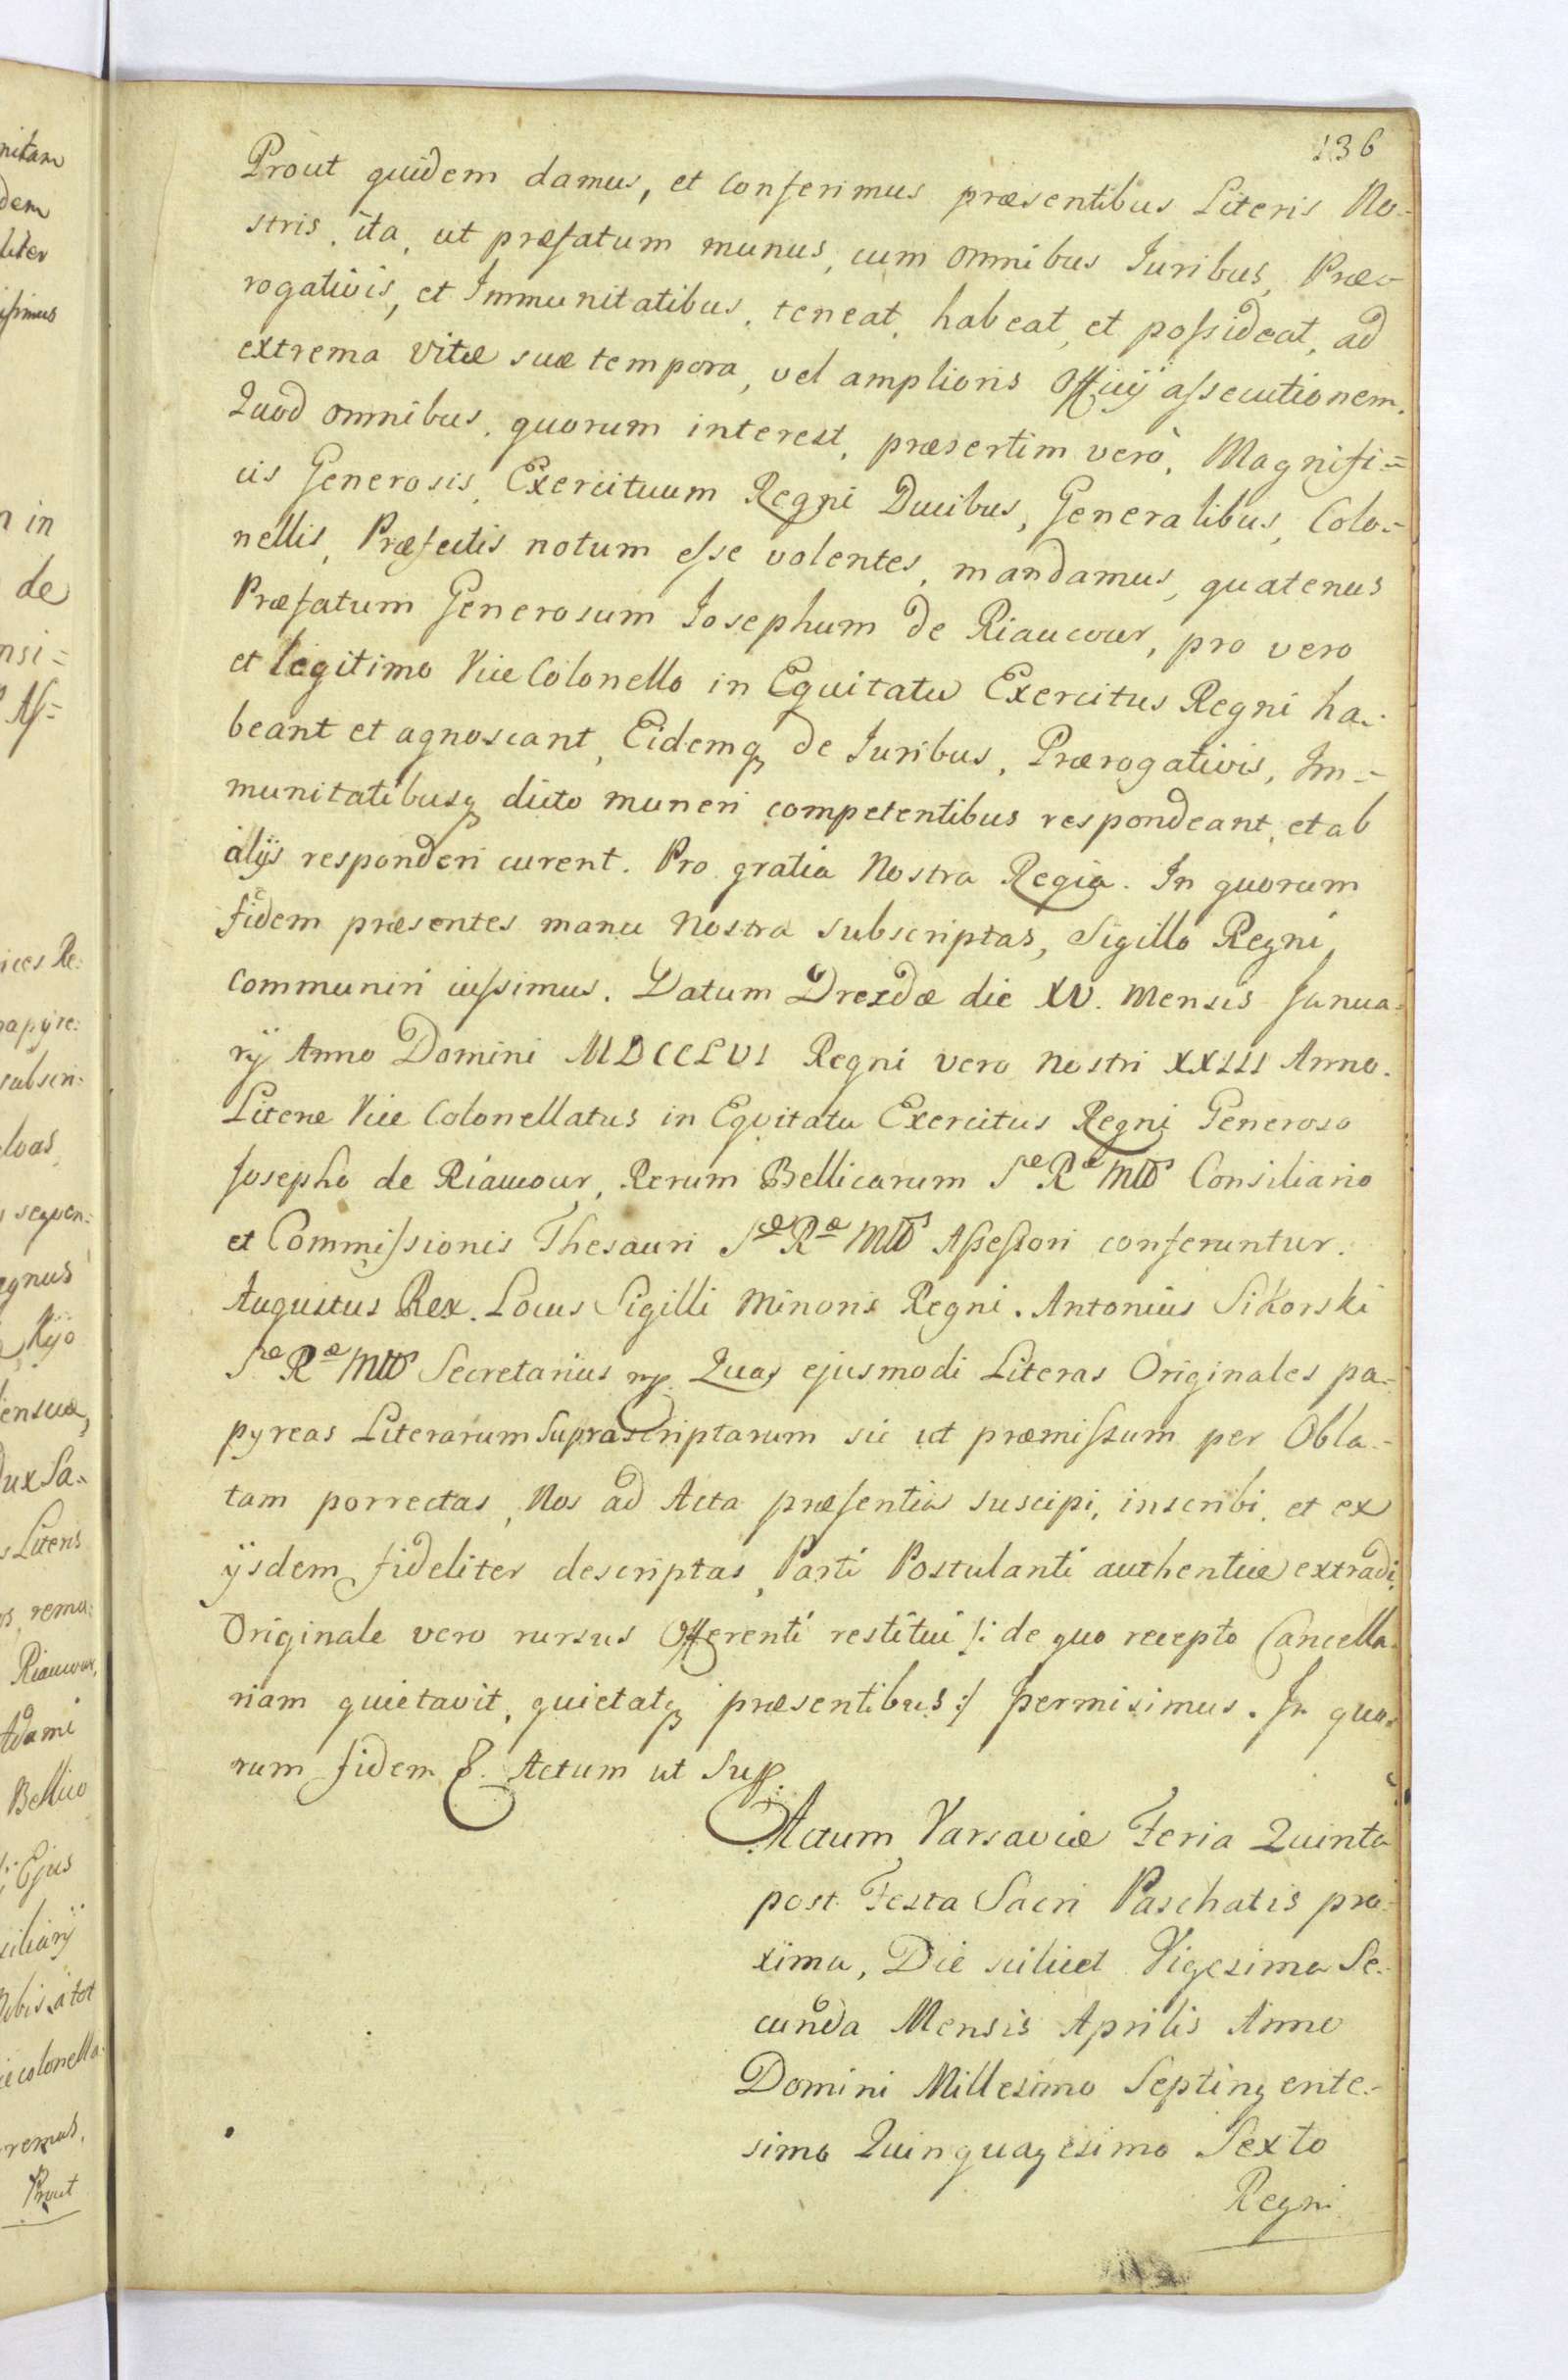 136
Prout quidem damus, et conferimus præsentibus Literis No-
stris, ita, ut præfatum munus, cum omnibus Iuribus, Præ-
rogativis, et Immunitatibus, teneat, habeat, et possideat, ad
extrema vitæ suæ tempora, vel amplioris Officij assecutionem.
Quod omnibus, quorum interest, præsertim verò, Magnifi=
cis Generosis, Exercituum Regni Ducibus, Generalibus, Colo=
nellis, Præfectis notum esse volentes, mandamus, quatenus
Præfatum Generosum Iosephum de Riaucour, pro vero
et legitimo Vice Colonello in Equitatu Exercitus Regni ha-
beant et agnoscant, Eidemq de Iuribus, Prærogativis, Im=
munitatibusq dicto muneri competentibus respondeant, et ab
alijs responderi curent. Pro gratia Nostra Regia. In quorum
fidem præsentes manu Nostra subscriptas, Sigillo Regni
communiri iussimus. Datum Dresdæ die XV. Mensis Janua-
rij Anno Domini MDCCLVI Regni vero Nostri XXIII Anno.
Literæ Vice Colonellatus in Eqvitatu Exercitus Regni Generoso
Josepho de Riaucour, Rerum Bellicarum Sæ Ræ Mttis Consiliario
et Commissionis Thesauri Sæ Ræ Mttis Assessori conferuntur.
Augustus Rex. Locus Sigilli Minoris Regni. Antonius Sikorski
Sæ Ræ Mttis Secretarius mp. Quas ejusmodi Literas Originales pa-
pyreas Literarum Suprascriptarum sic ut præmissum per Obla-
tam porrectas, Nos ad Acta præsentia suscipi, inscribi, et ex
ijsdem fideliter descriptas, Parti Postulanti authentice extradi,
Originale vero rursus Offerenti restitui /: de quo recepto Cancella-
riam quietavit, quietatq præsentibus :/ permisimus. In quo-
rum fidem &. Actum ut Sup
Actum Varsaviæ Feria Quinta
post Festa Sacri Paschatis pro-
xima, Die scilicet Vigesima Se-
cunda Mensis Aprilis Anno
Domini Millesimo Septingente-
simo Quinquagesimo Sexto
Regni